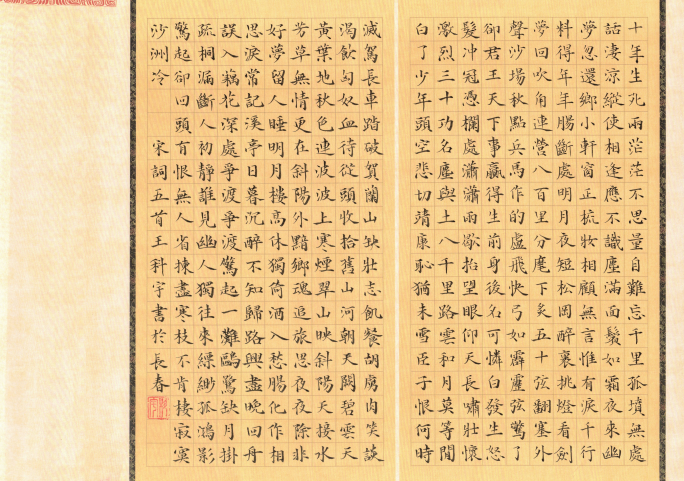 十年生死兩茫茫不思量自難忘千里孤墳無處
話淒涼縱使相逢應不識塵滿面鬢如霜夜來幽
夢忽還鄉小軒窗正梳妝相顧無言惟有淚千行
料得年年腸斷處明月夜短松岡醉裏挑燈看劍
夢回吹角連營八百里分麾下炙五十弦翻塞外
聲沙場秋點兵馬作的盧飛快弓如霹靂弦驚了
卻君王天下事贏得生前身後名可憐白發生怒
髮冲冠憑欄處瀟瀟雨歇抬望眼仰天長嘯壯懷
激烈三十功名塵與土八千里路雲和月莫等閒
白了少年頭空悲切靖康恥猶未雪臣子恨何時
滅駕長車踏破賀蘭山缺壯志飢餐胡虜肉笑談
渴飲匈奴血待從頭收拾舊山河朝天闕碧雲天
黃葉地秋色連波波上寒煙翠山映斜陽天接水
芳草無情更在斜陽外黯鄉魂追旅思夜夜除非
好夢留人睡明月樓高休獨倚酒入愁腸化作相
思淚常記溪亭日暮沉醉不知歸路興盡晚回舟
誤入藕花深處爭渡爭渡驚起一灘鷗鷺缺月掛
疏桐漏斷人初靜誰見幽人獨往來縹緲孤鴻影
驚起卻回頭有恨無人省揀盡寒枝不肯棲寂寞
沙洲冷 宋詞五首王科宇書於長春